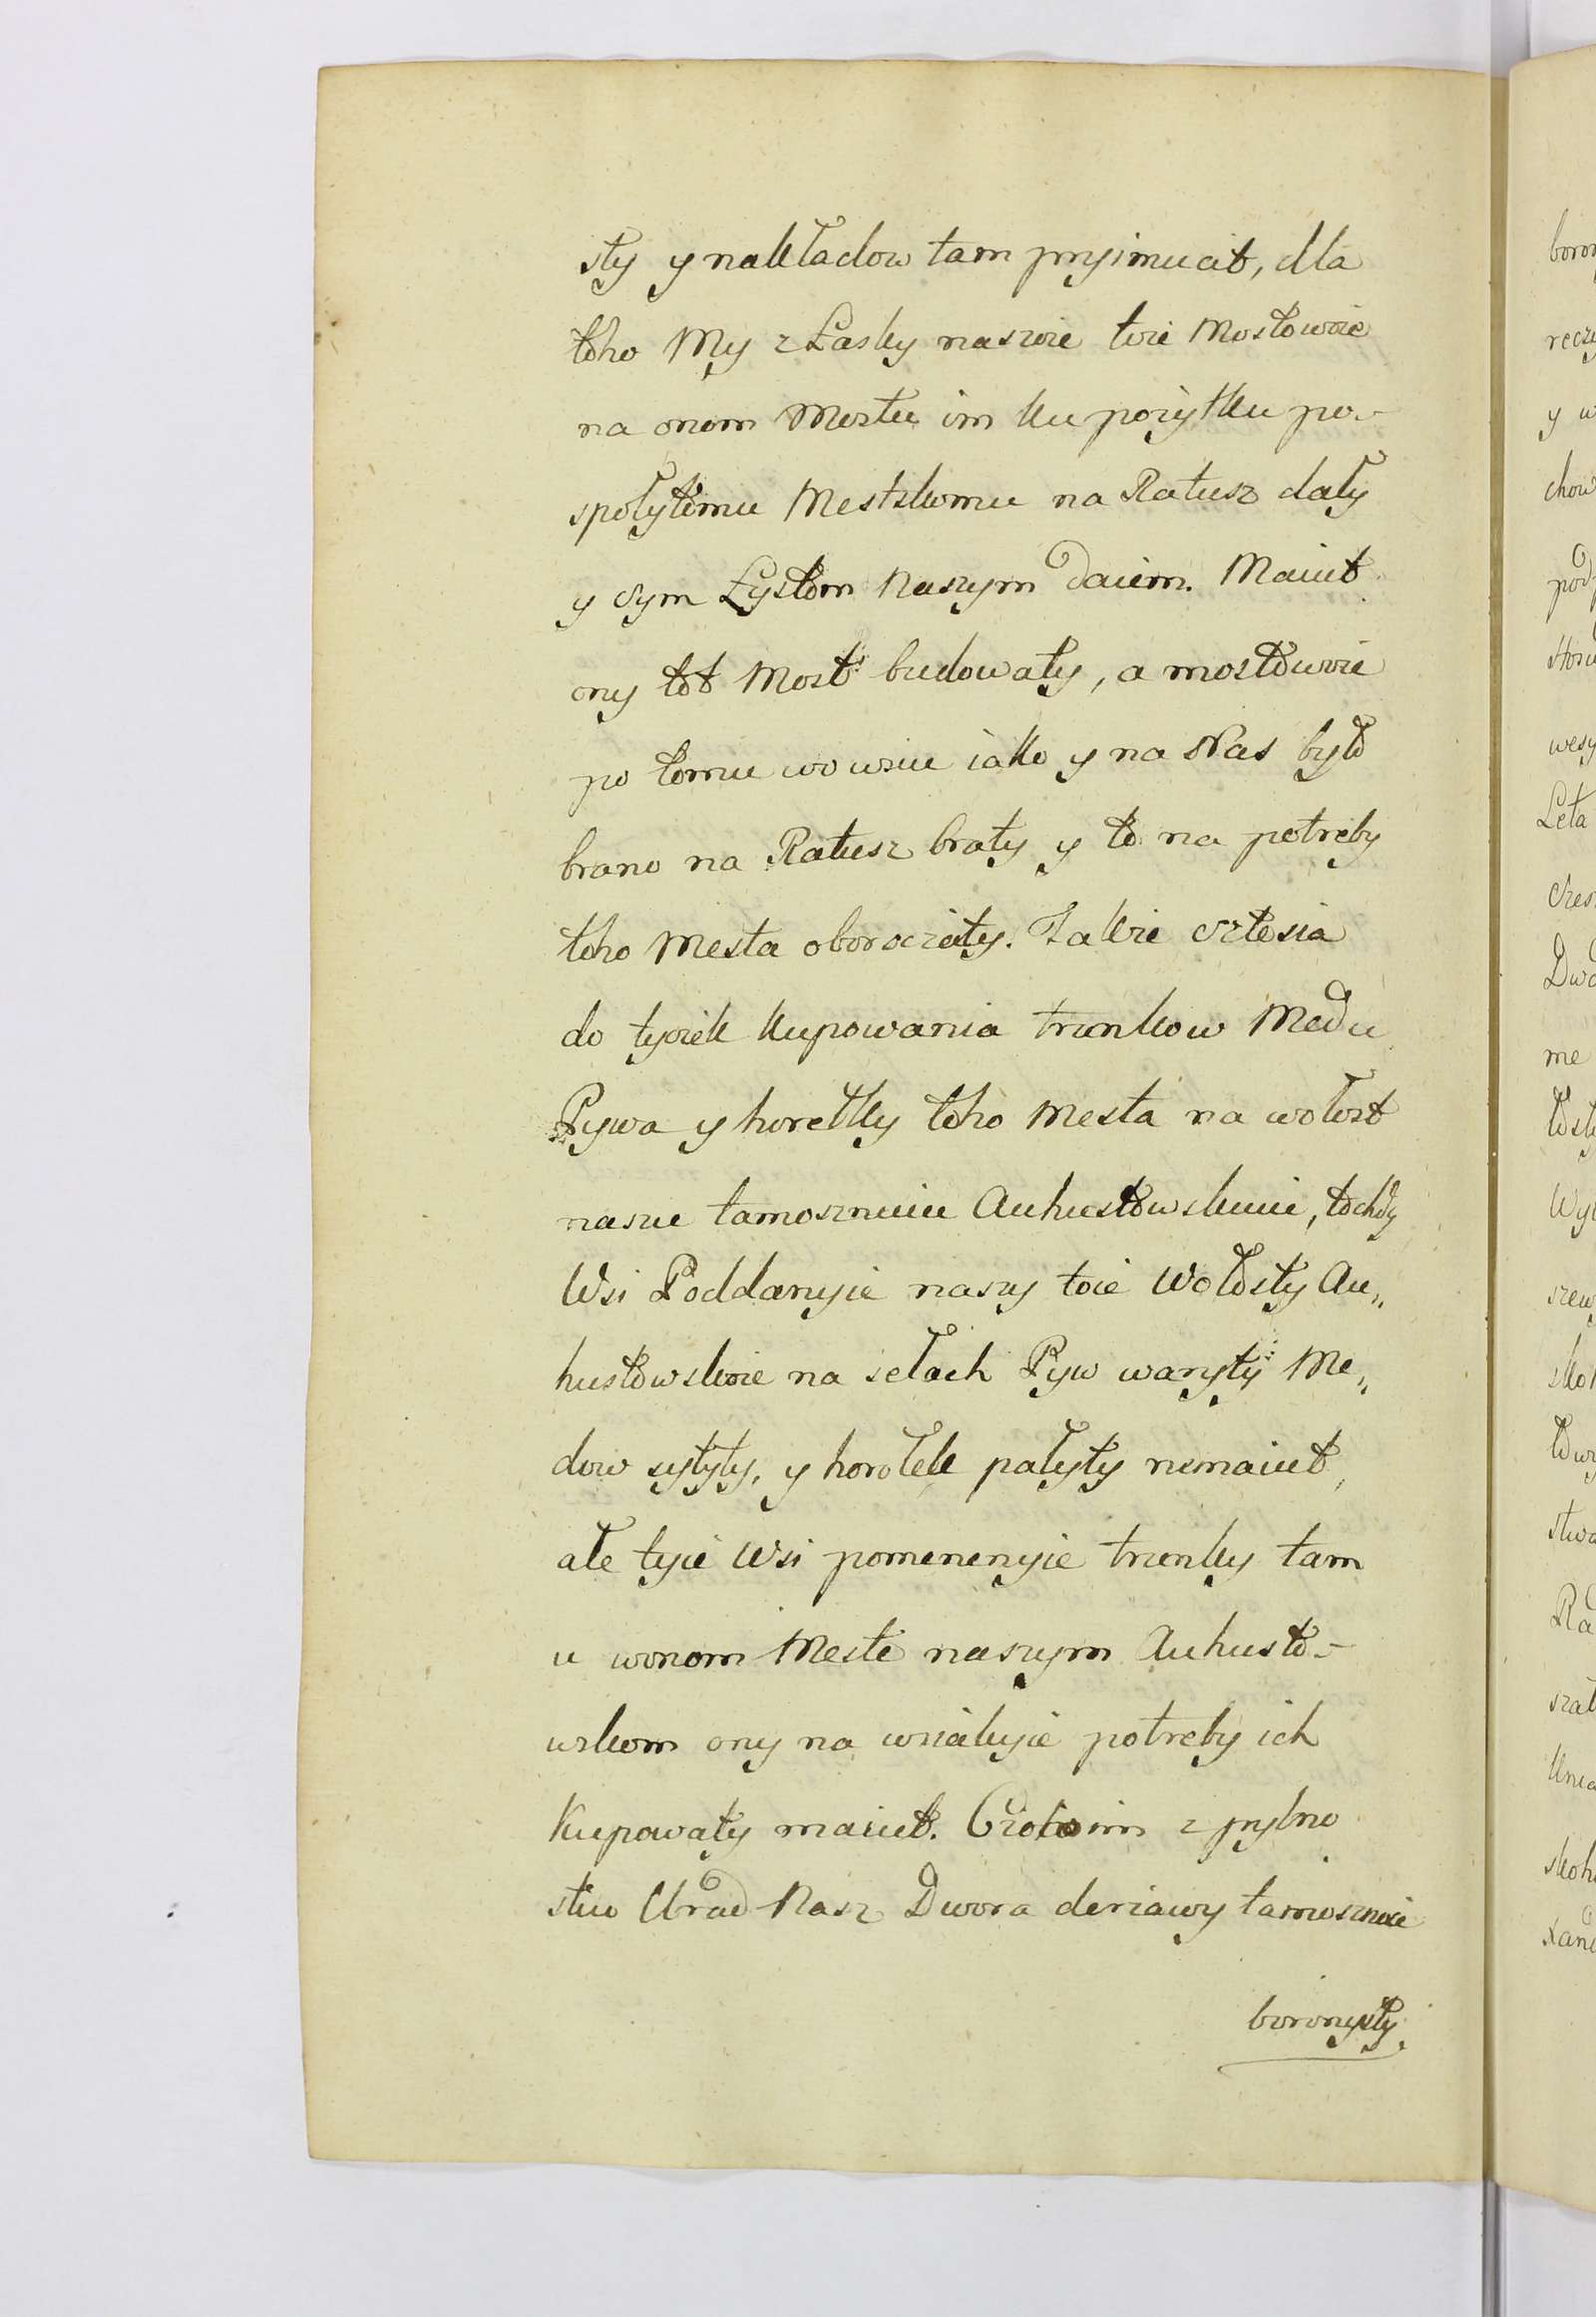 sty y nakładow tam pryimucit, dla
toho My z Łasky naszoie toie Mostowoie
na onom Mostu im ku pożytku po-
społytomu Mestskomu na Ratusz dały
y sym Łystom Naszym daiem. Maiut
ony tot Most budowaty, a mostowoie
po tomu wo wsiu iako y na Nas było
brano na Ratusz braty y to na potreby
toho Mesta oboroczaty. Takie sztosia
do tyczek kupowania trunkow Medu
Pywa y horełky toho Mesta na wołost
naszu tamosznuiu Auhustowskuiu, tochdy
Wsi Poddanyie naszy toie Wołosty Au„
hustowskoie na sełach Pyw waryty Me„
dow sytyty, y horołek pałyty nemaiut,
ałe tyie Wsi pomenenyie trunky tam
u wonom Meste naszym Auhusto-
wskom ony na wsiakyie potreby ich
Kupowaty maiut. Czoho im z pylno
stiu Urad Nasz Dwora derżawy tamosznoie
boronyty
boron
recz
y w
chow
pod
Hosu
wesy
Leta
czes
Dwo
me
tosty
Wyl
szew
sko
tow
stwa
Ra
szał
Knia
skoh